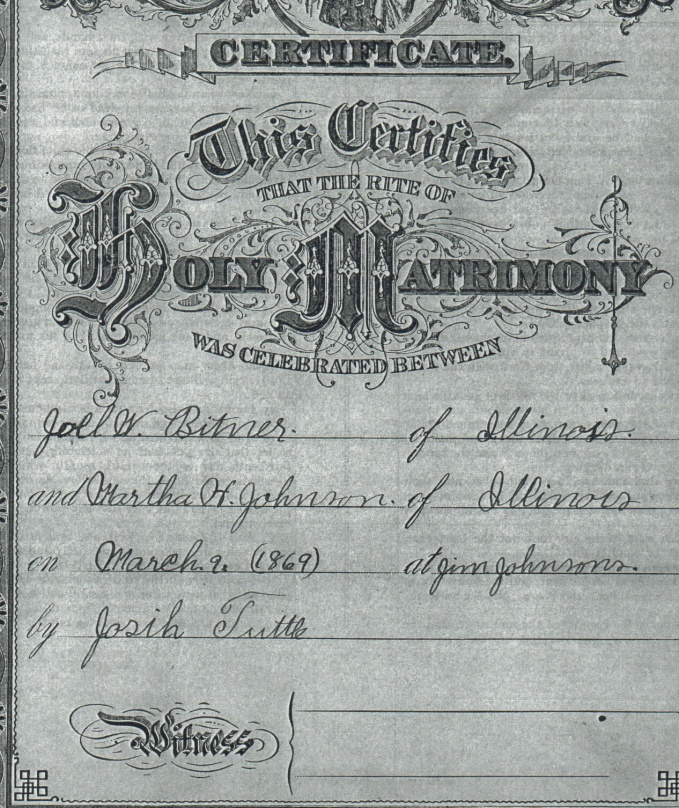 CERTIFICATE.
This Certifies
THAT THE RITE OF
HOLY MATRIMONY
WAS CELEBRATED BETWEEN
Joel W. Bitner. of Illinois.
and Martha W. Johnson. of Illinois
on March. 9. (1869) at jim johnsons.
by Josih Tuttle
Witness